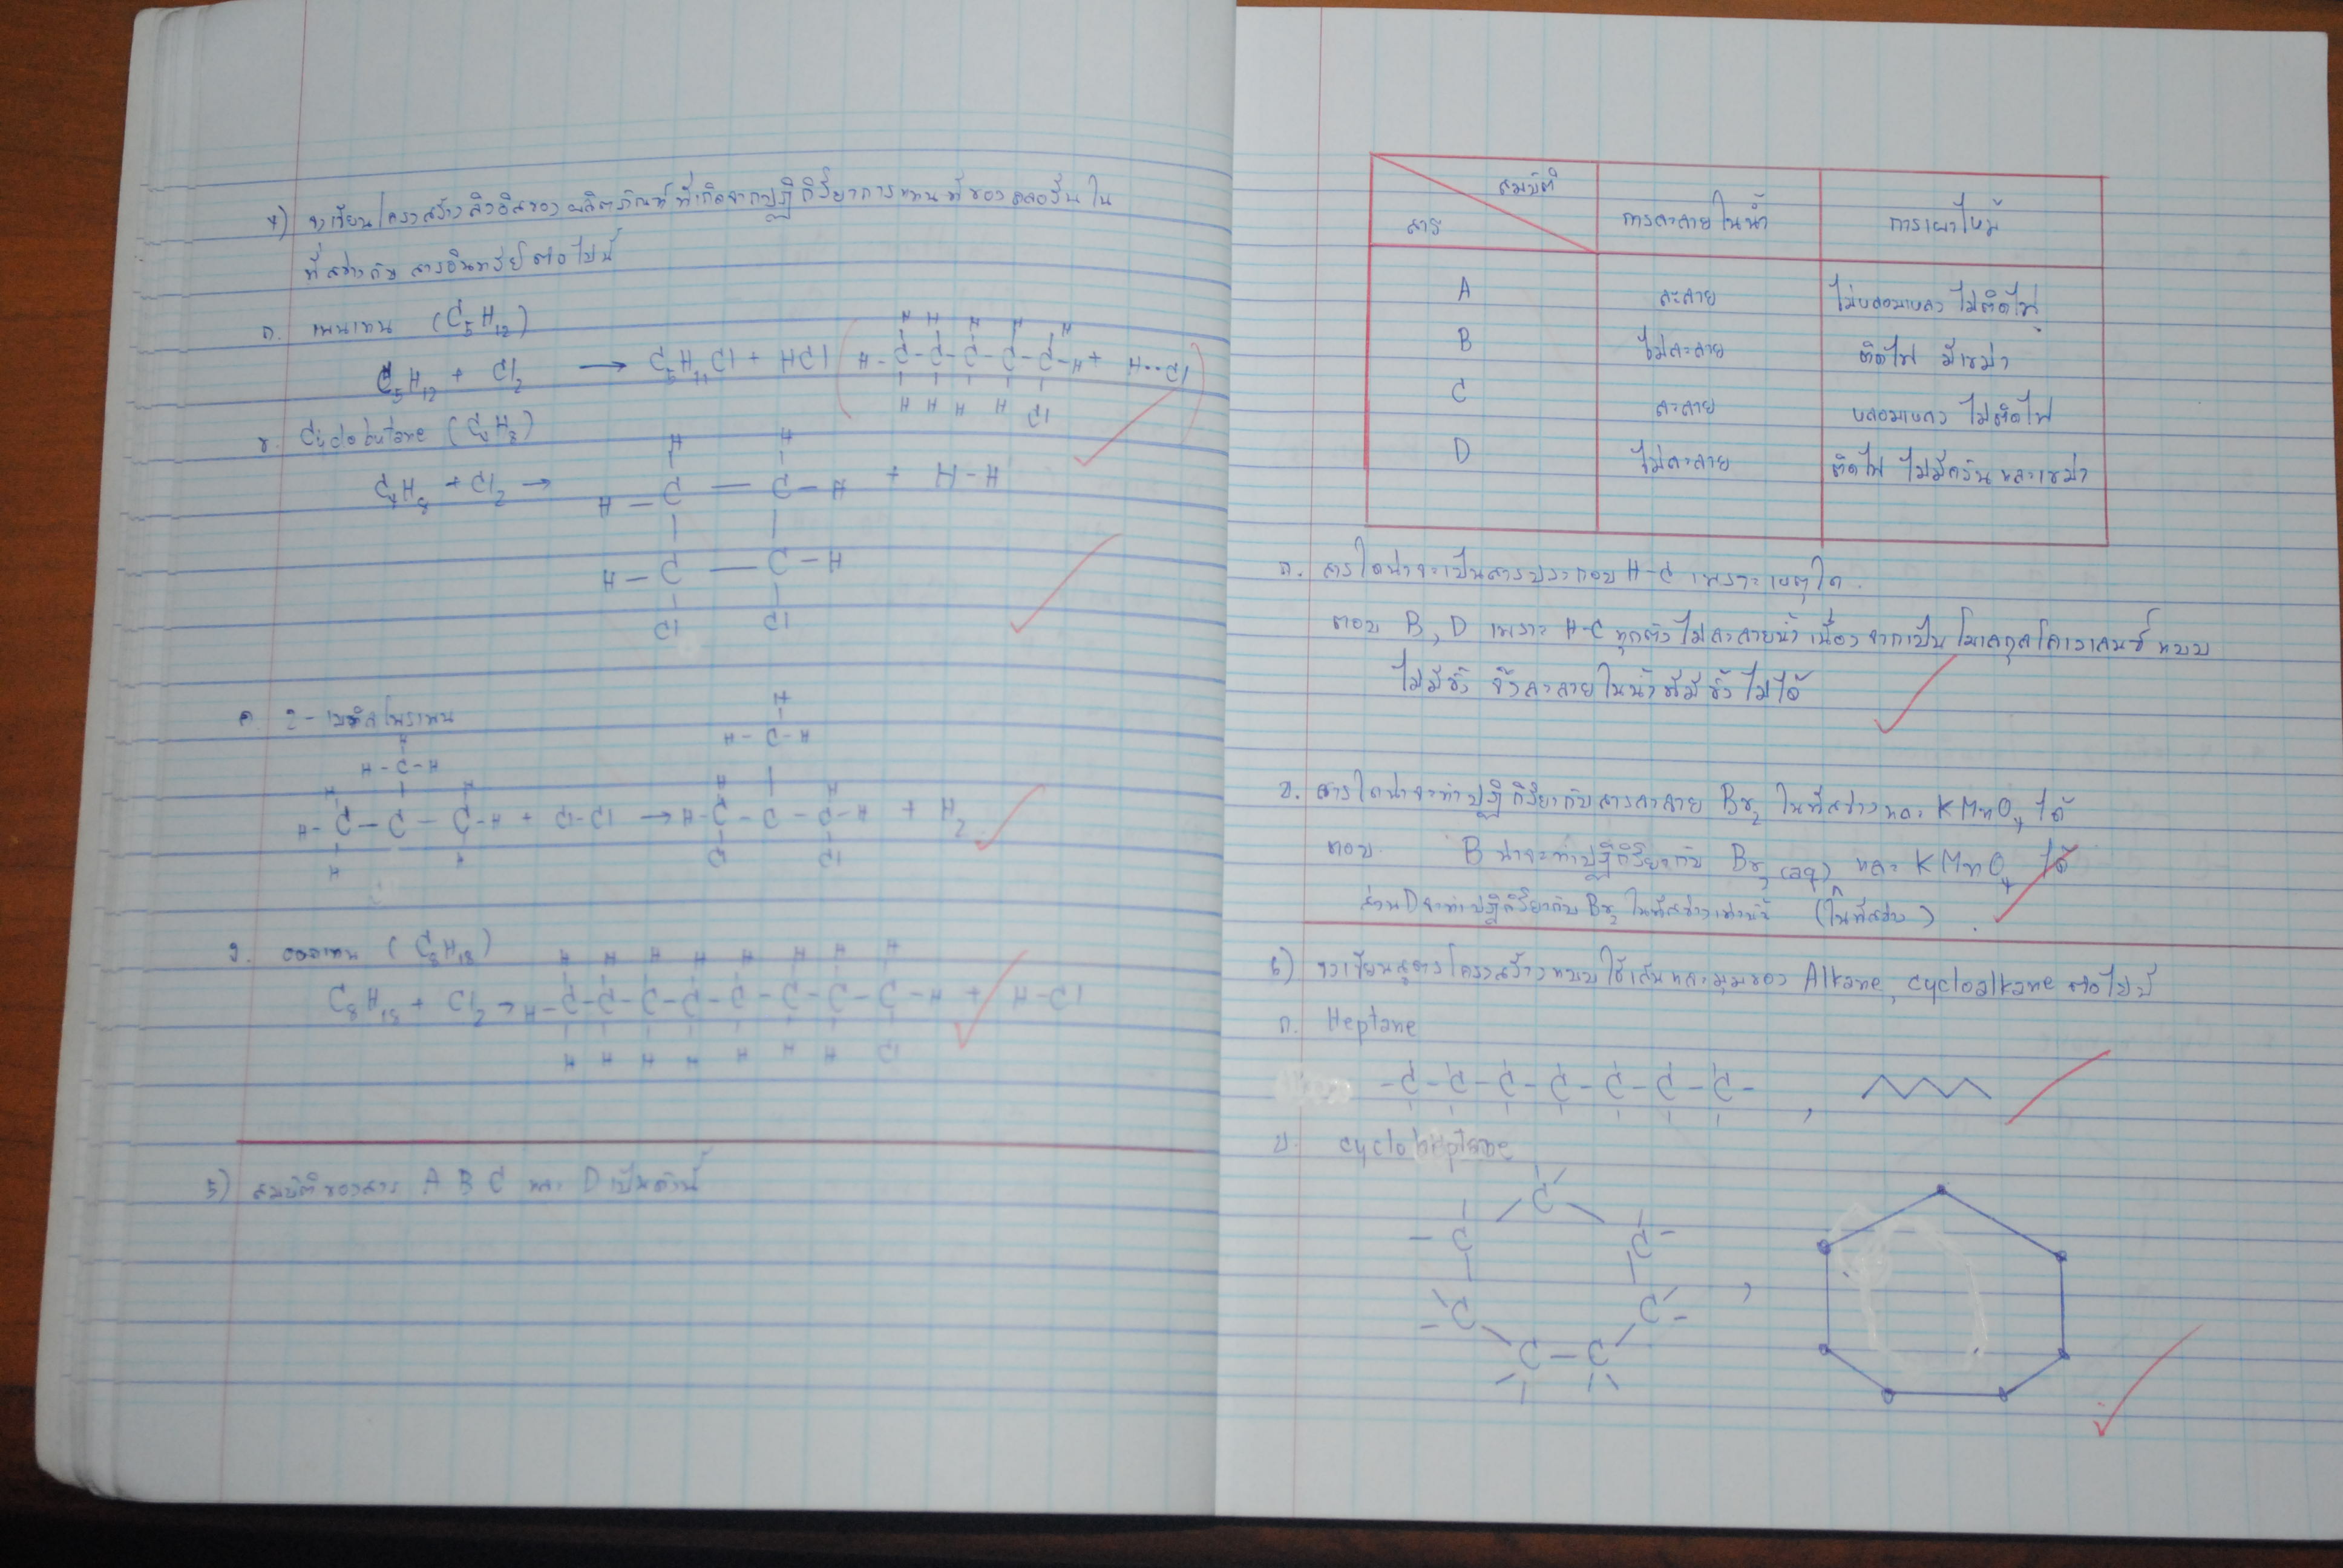 4) จงเขียนโครงสร้างลิวอิสของผลิตภัณฑ์ที่เกิดจากปฏิกิริยาการแทนที่ของคลอรีนใน
ที่สว่างกับ สารอินทรีย์ต่อไปนี้
ก. เพนเทน (C5H12)
C5H12 + Cl2 → C5H11Cl + HCl
ข. Cyclobutane (C4H8)
C4H8 + Cl2 →
+ H-H
ค. 2-เมทิลโพรเพน
+ Cl-Cl →
+ H2
ง. ออกเทน (C8H18)
C8H18 + Cl2 →
+ H-Cl
5) สมบัติของสาร A B C และ D เป็นดังนี้
สมบัติ
สาร
การละลายในน้ำ
การเผาไหม้
A ละลาย ไม่หลอมเหลว ไม่ติดไฟ
B ไม่ละลาย ติดไฟ มีเขม่า
C ละลาย หลอมเหลว ไม่ติดไฟ
D ไม่ละลาย ติดไฟ ไม่มีควันและเขม่า
ก. สารใดน่าจะเป็นสารประกอบ H-C เพราะเหตุใด
ตอบ B, D เพราะ H-C ทุกตัวไม่ละลายน้ำ เนื่องจากเป็นโมเลกุลโคเวเลนซ์แบบ
ไม่มีขั้ว จึงละลายในน้ำที่มีขั้วไม่ได้
ข. สารใดน่าจะทำปฏิกิริยากับสารละลาย Br2 ในที่สว่างและ KMnO4 ได้
ตอบ B น่าจะทำปฏิกิริยากับ Br2 (aq) และ KMnO4 ได้
ส่วน D จะทำปฏิกิริยากับ Br2 ในที่สว่างเท่านั้น (ในที่สว่าง)
6) จงเขียนสูตรโครงสร้างแบบใช้เส้นและมุมของ Alkane, cycloalkane ต่อไปนี้
ก. Heptane
-C-C-C-C-C-C-C- ,
ข. cycloheptane